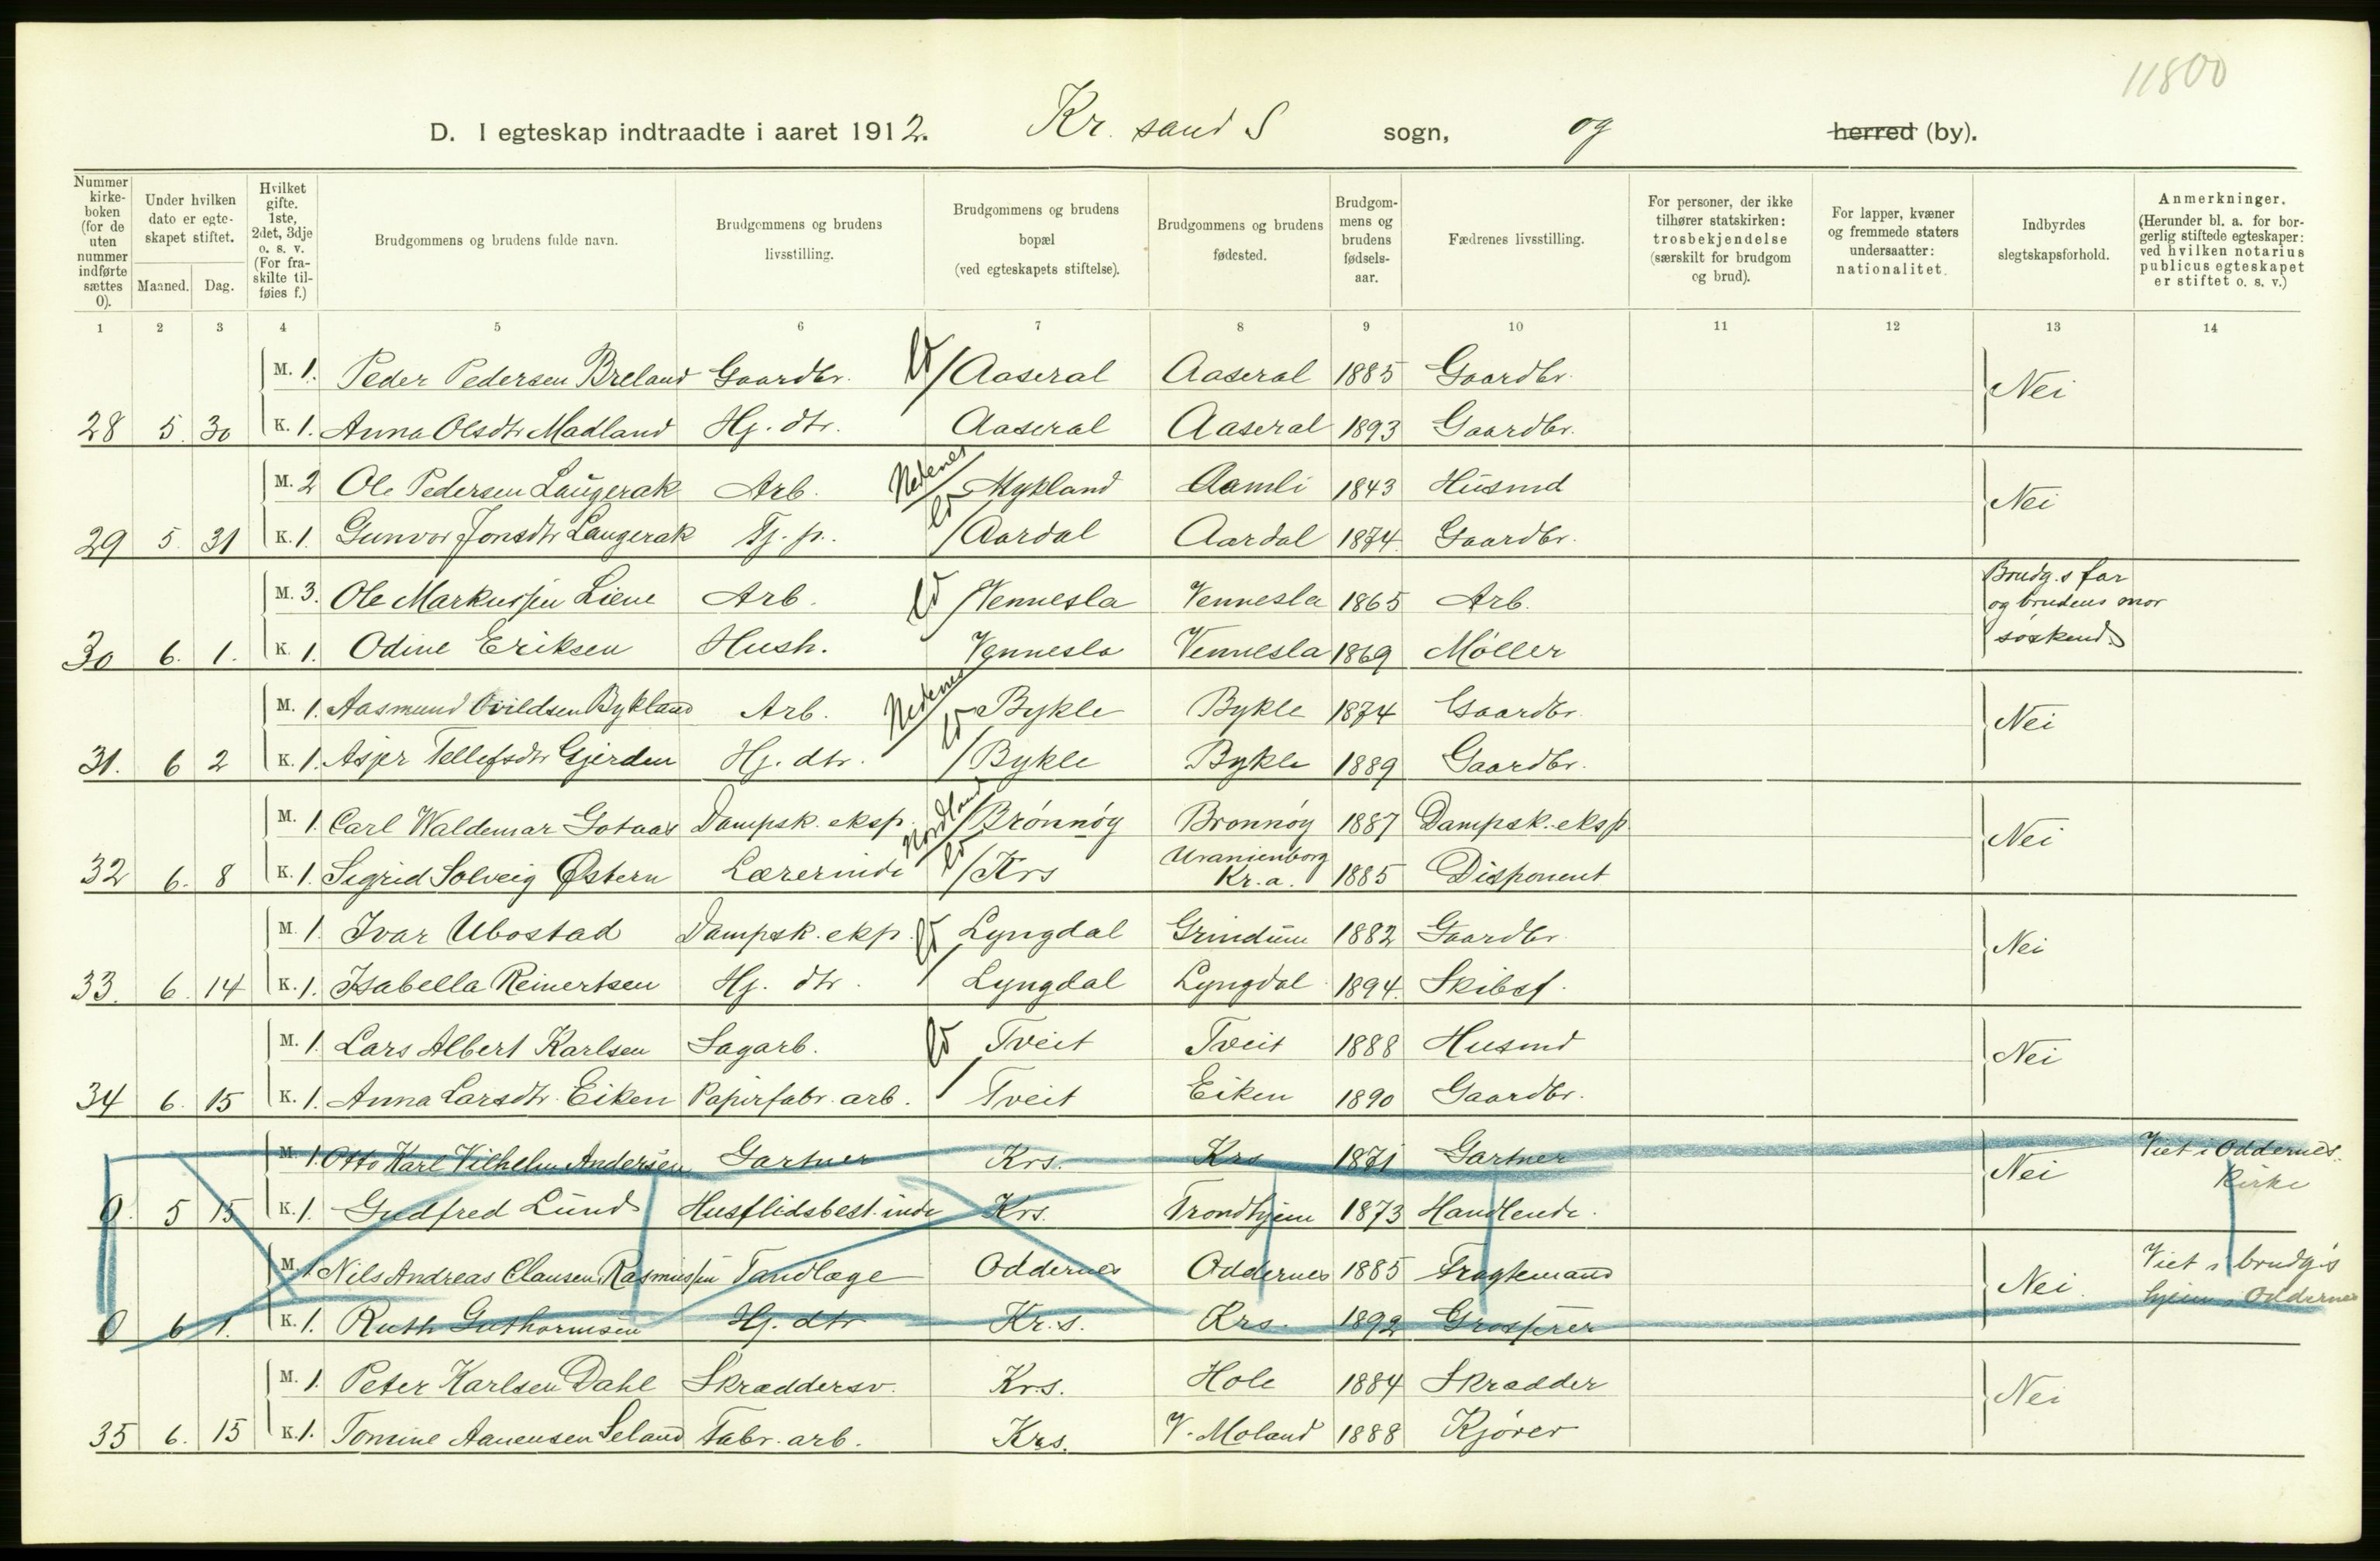 11800
D. I egteskap indtraadte i aaret 1912. Kr. sand S sogn, og herred (by).
Nummer kirke-boken (for de uten nummer indførte sættes 0).
Under hvilken dato er egte-skapet stiftet.
Maaned. Dag.
Hvilket gifte. 1ste, 2det, 3dje o. s. v. (For fra-skilte til-føies f.)
Brudgommens og brudens fulde navn.
Brudgommens og brudens livsstilling.
Brudgommens og brudens bopæl (ved egteskapets stiftelse).
Brudgommens og brudens fødested.
Brudgom-mens og brudens fødsels-aar.
Fædrenes livsstilling.
For personer, der ikke tilhører statskirken: trosbekjendelse (særskilt for brudgom og brud).
For lapper, kvæner og fremmede staters undersaatter: nationalitet.
Indbyrdes slegtskapsforhold.
Anmerkninger. (Herunder bl. a. for bor-gerlig stiftede egteskaper: ved hvilken notarius publicus egteskapet er stiftet o. s. v.)
1 2 3 4 5 6 7 8 9 10 11 12 13 14
M. 1. Peder Pedersen Breland Gaardbr. Aaseral Aaseral 1885 Gaardbr. Nei
28 5 30 K. 1. Anna Olsdtr Madland Hj. dtr. Aaseral Aaseral 1893 Gaardbr.
M. 2 Ole Pedersen Laugerak Arb. Nedenes Mykland Aamli 1843 Husmd Nei
29 5. 31 K. 1. Gunvor Jonsdtr Laugerak Tj. p. Aardal Aardal 1874 Gaardbr.
M. 3. Ole Markussen Liene Arb. Vennesla Vennesla 1865 Arb. Brudg.s far og brudens mor søskend.
30 6. 1. K. 1. Odine Eriksen Hush. Vennesla Vennesla 1869 Møller
M. 1. Aasmund Bykland Arb. Nedenes Bykle Bykle 1874 Gaardbr. Nei
31. 6 2 K. 1. Tellefsdtr Gjerden Hj. dtr. Bykle Bykle 1889 Gaardbr.
M. 1. Carl Waldemar Gotaas Dampsk. eksp. Nordland Brønnøy Brønnøy 1887 Dampsk. eksp. Nei
32 6. 8 K. 1. Sigrid Solveig Østern Lærerinde Krs Uranienborg Kr.a. 1885 Disponent
M. 1. Ivar Ubostad Dampsk. ekp. Lyngdal Grindum 1882 Gaardbr. Nei
33. 6. 14 K. 1. Isabella Reinertsen Hj. dtr. Lyngdal Lyngdal 1894. Skibsf.
M. 1. Lars Albert Karlsen Sagarb. Tveit Tveit 1888 Husmd Nei
34 6. 15 K. 1. Anna Larsdtr. Eiken Papirfabr. arb. Tveit Eiken 1890 Gaardbr.
M. 1. Otto Karl Vilhelm Andersen Gartner Krs. Krs 1871 Gartner Nei Viet i Oddernes Kirke
0. 5 15 K. 1. Gudfred Lund Husflidsbest.inde Krs. Trondhjem 1873 Handlende.
M. 1. Nils Andreas Clausen Rasmussen Tandlæge Oddernes Oddernes 1885 Fragtemand Nei. Viet i brudg.s hjem, Oddernes
0 6 1. K. 1. Ruth Guthormsen Hj. dtr Kr.s. Krs. 1892 Grosserer
M. 1. Peter Karlsen Dahl Skræddersv. Krs. Hole 1884 Skrædder Nei
35 6. 15 K. 1. Tomine Aanensen Seland Fabr. arb. Krs. V. Moland 1888 Kjører